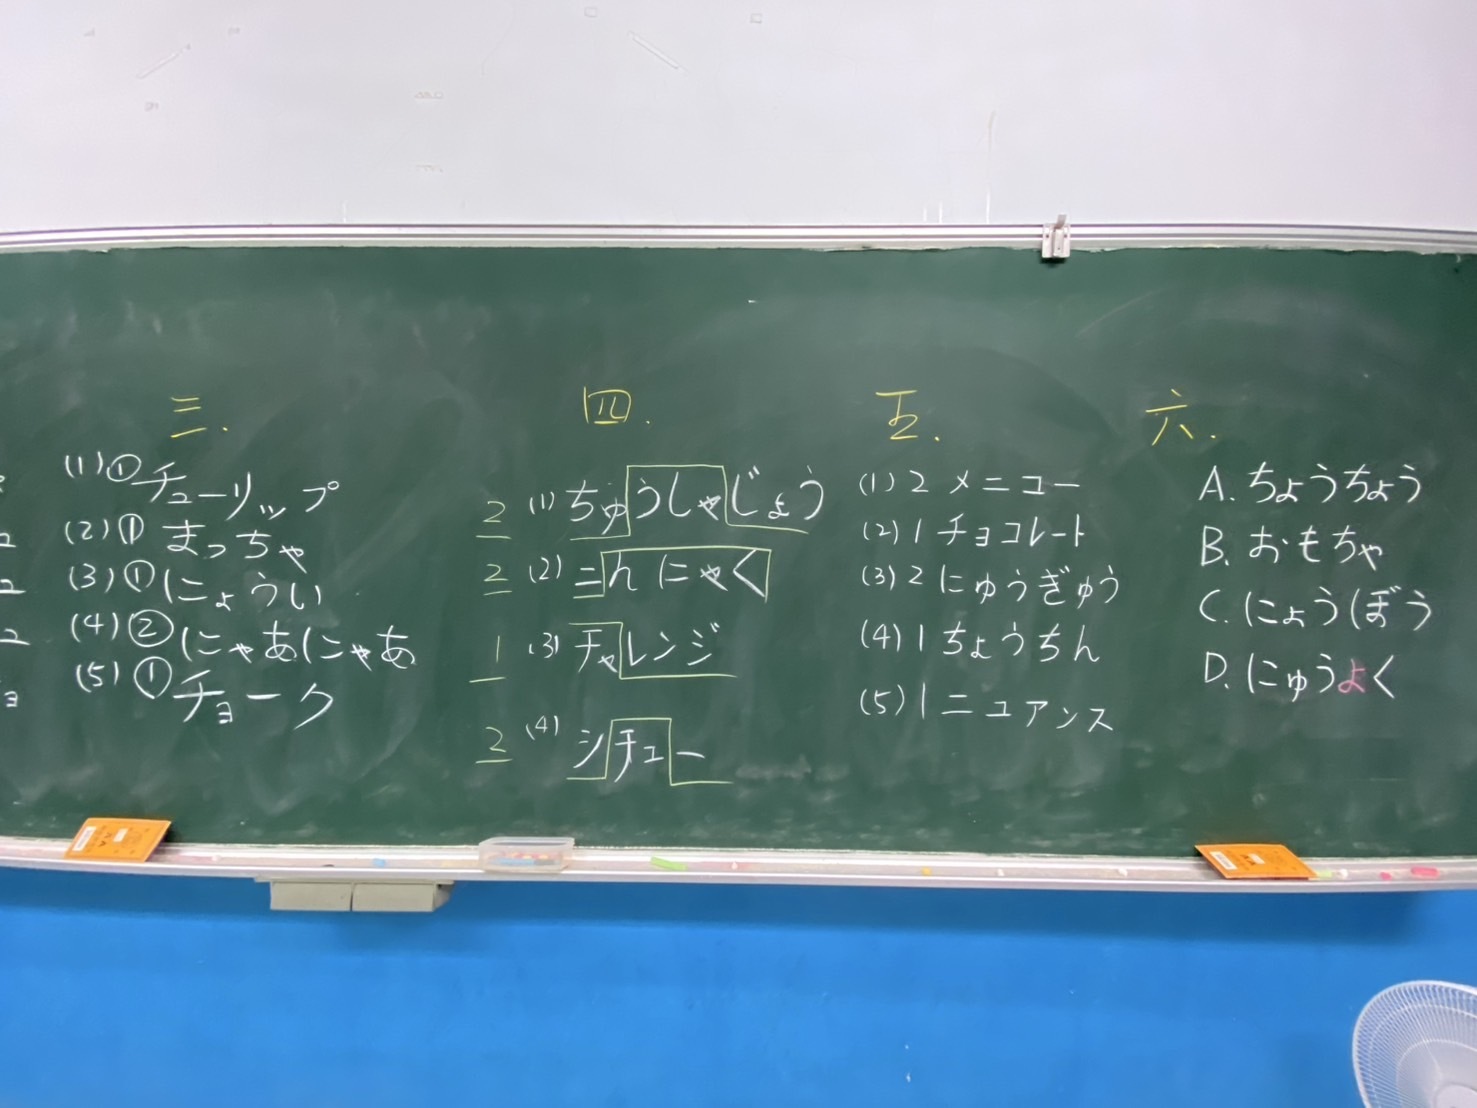 三.
(1)①チューリップ
(2)①まっちゃ
(3)①にょうい
(4)②にゃあにゃあ
(5)①チョーク
四.
2 (1)ちゅうしゃじょう
2 (2)こんにゃく
1 (3)チャレンジ
2 (4)シチュー
五.
(1)2 メニュー
(2)1 チョコレート
(3)2 にゅうぎゅう
(4)1 ちょうちん
(5)1 ニュアンス
六.
A.ちょうちょう
B.おもちゃ
C.にょうぼう
D.にゅうよく